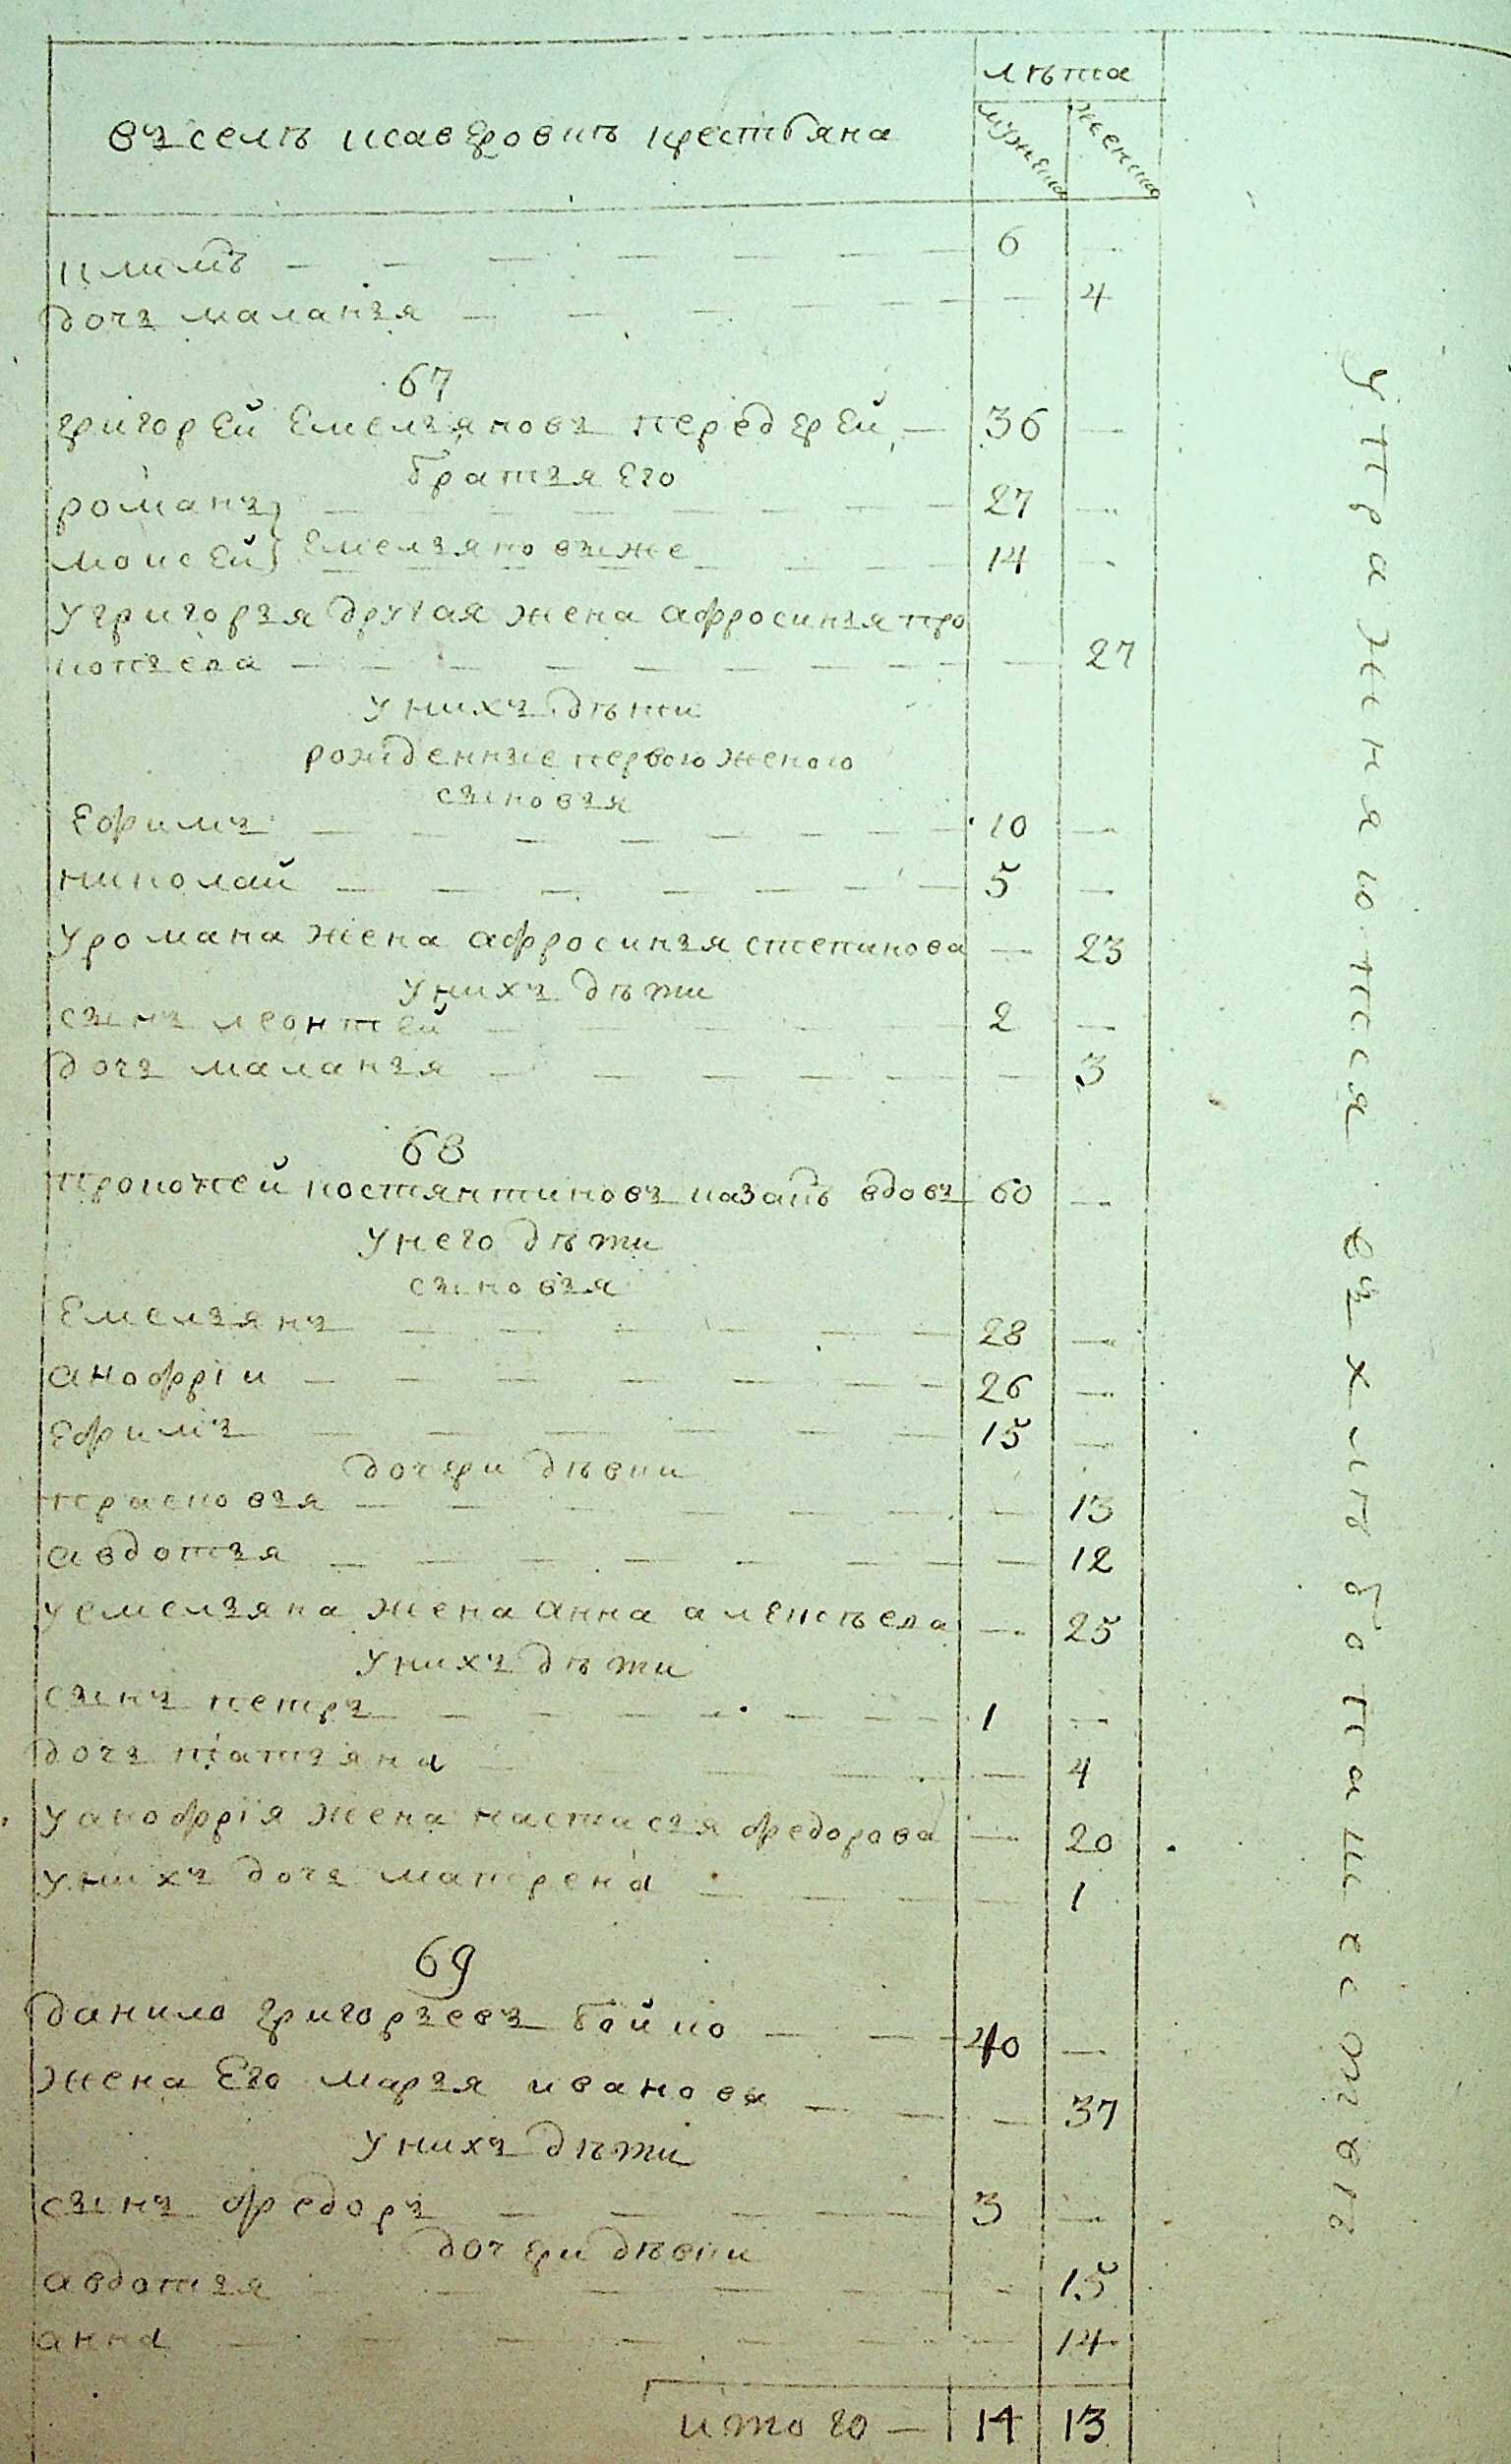 лѣта
въ селѣ исавровкѣ крестьяна
мужеска
женска
климъ — 6 —
дочь маланья — 4
67
григорей емельяновъ передерей — 36 —
братья его
романъ — 27 —
моисей } емельяновы же — 14 —
у григорья другая жена афросинья про
кофьева — 27
у нихъ дѣти
рожденные первою женою
сыновья
ефимъ — 10 —
николай — 5 —
у романа жена афросинья степанова — 23
у нихъ дѣти
сынъ леонтей — 2 —
дочь маланья — 3
68
прокофей костянтиновъ казакъ вдовъ 60 —
у него дѣти
сыновья
емельянъ — 28 —
анофрій — 26 —
ефимъ — 15 —
дочери дѣвки
прасковья — 13
авдотья — 12
у емельяна жена анна алексѣева — 25
у нихъ дѣти
сынъ петръ — 1 —
дочь татьяна — 4
у анофрія жена настасья федорова — 20
у нихъ дочь матрена — 1
69
данило григорьевъ бойко — 40 —
жена его марья иванова — 37
у нихъ дѣти
сынъ федоръ — 3 —
дочери дѣвки
авдотья — 15
анна — 14
итого — 14 13
упражняются въ хлѣбопашествѣ